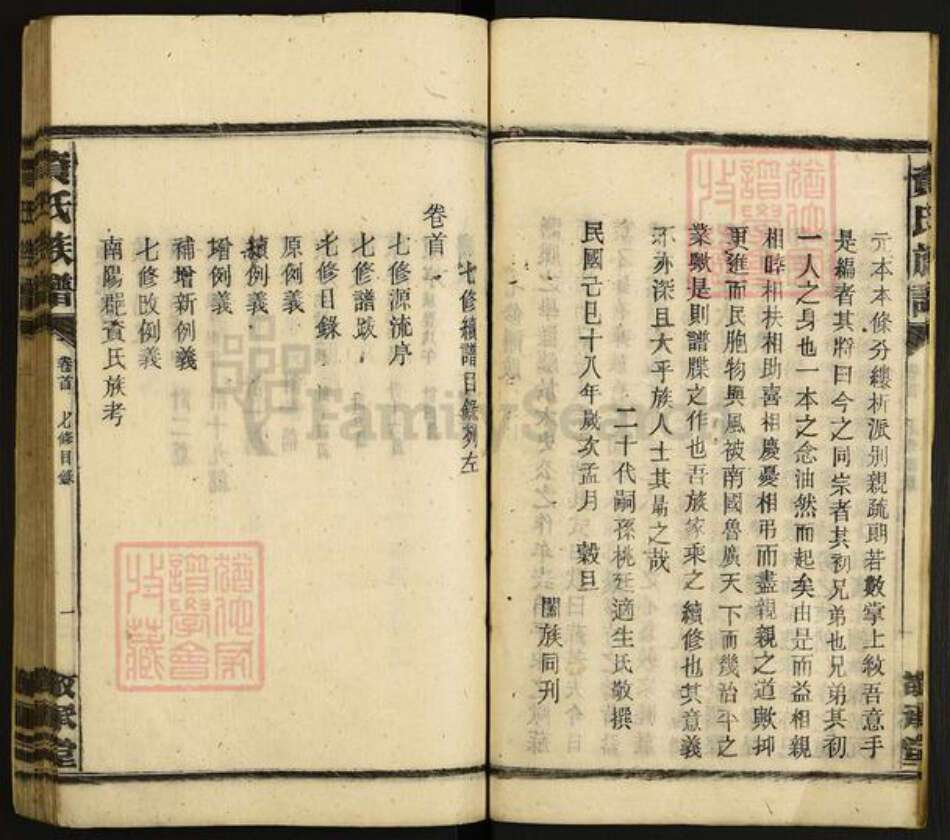 元本本條分縷析派別親疏朗若數掌上紋吾意手
是編者其將曰今之同宗者其初兄弟也兄弟其初
一人之身也一本之念油然而起矣由是而益相親
相睦相扶相助喜相慶憂相弔而盡親親之道歟抑
更進而民胞物與風被南國魯廣天下而幾治平之
業歟是則譜牒之作也吾族家乘之續修也其意義
不亦深且大乎族人士其勗之哉
二十代嗣孫桃廷適生氏敬撰
民國己巳十八年歲次孟月 穀旦
闔族同刊
七修續譜目錄列左
卷首
七修源流序
七修譜跋
七修目錄
原例義
續例義
增例義
補增新例義
七修改例義
南陽郡賁氏族考
賁氏族譜
卷首
七修目錄
一
敦承堂
猶他家譜學會收藏
FamilySearch